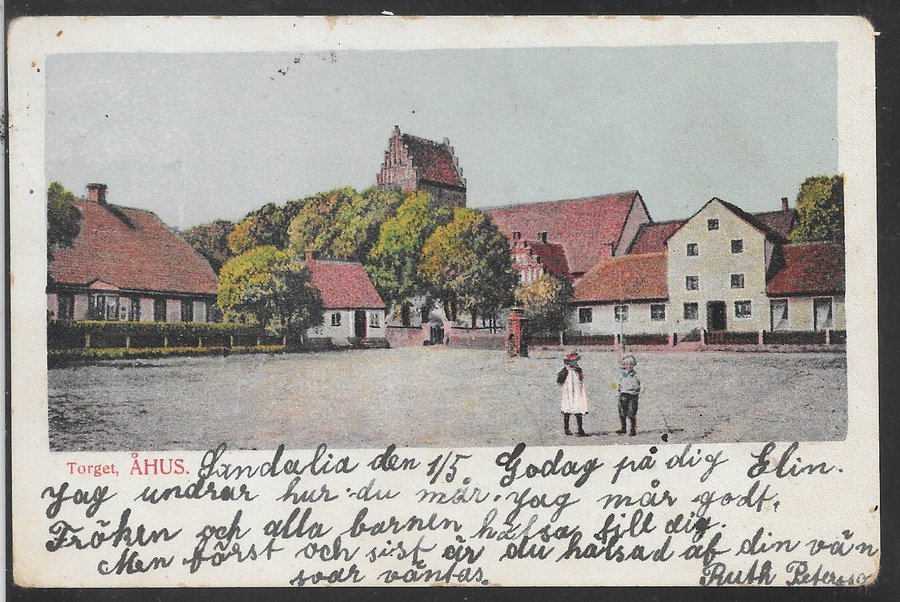 Torget, ÅHUS. Sandalia den 1/5. Godag på dig Elin.
Jag undrar hur du mår. Jag mår godt.
Fröken och alla barnen hälsa till dig.
Men först och sist är du hälsad af din vän
svar väntas. Ruth Petersso